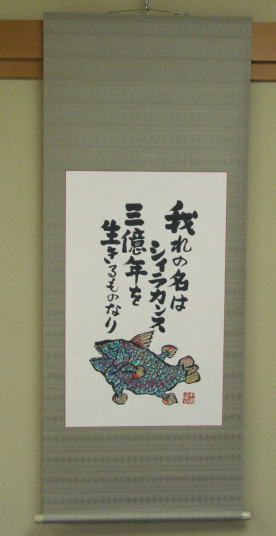 我れの名は
シイラカンス
三億年を
生きるものなり